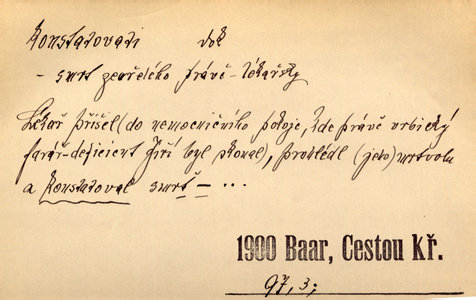 Konstatovati dok
- smrt zemřelého právě - lékařsky
Lékař přišel (do nemocničního pokoje, kde právě vrbický
farář-deficient Jiří byl skonal), prohlédl (jeho) mrtvolu
a konstatoval smrt - ...
1900 Baar, Cestou Kř.
97, 3;